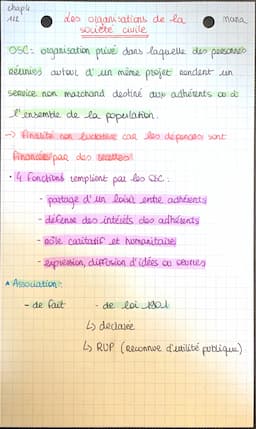 chap 4
1/2
des organisations de la
société civile
OSC: organisation privé dans laquelle des personnes
réunies autour d'un même projet rendent un
service non marchand destiné aux adhérents ou à
l'ensemble de la population.
→ Finalité non lucrative car les dépenses sont
financées par des recettes
• 4 fonctions remplient par les OSC:
- partage d'un loisir entre adhérents
- défense des intérêts des adhérents
- rôle caritatif et humanitaire
- expression, diffusion d'idées ou œuvres
* Association:
- de fait - de loi 1901
↳ déclarée
↳ RUP (Reconnue d'utilité publique)